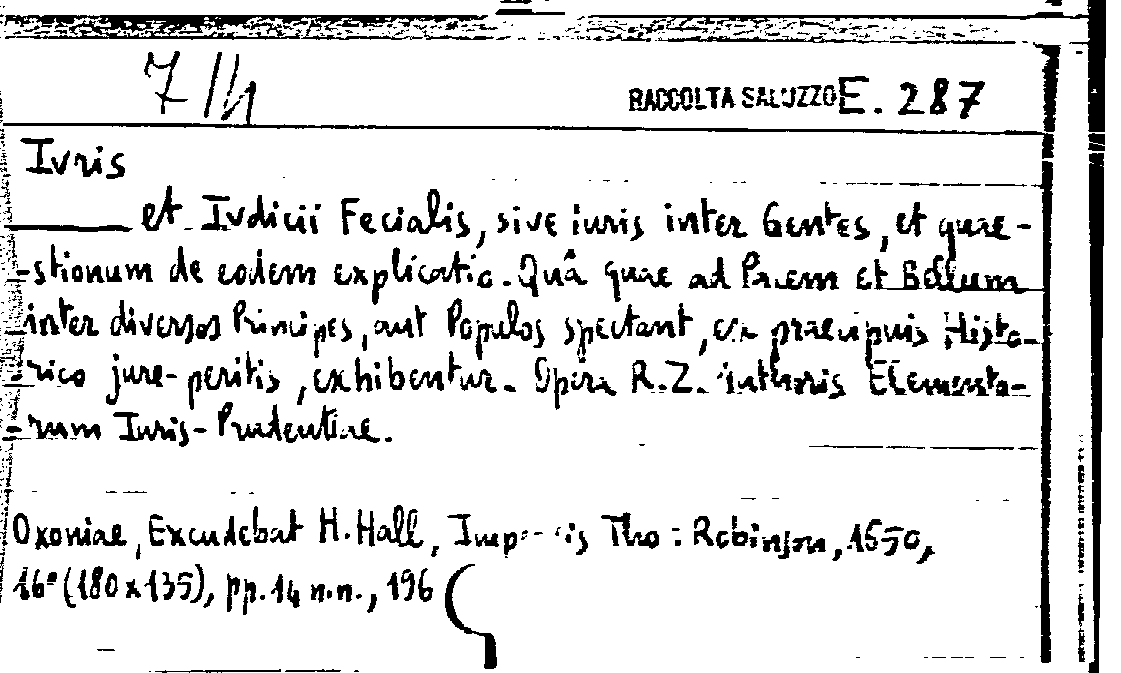 7/4
RACCOLTA SALUZZO E. 287
Iuris
et Iudicii Fecialis, sive iuris inter Gentes, et quae-
-stionum de eodem explicatio. Quâ quae ad Pacem et Bellum
inter diversos Principes, aut Populos spectant, ex praecipuis Histo-
-rico jure-peritis, exhibentur. Opera R.Z. Authoris Elementa-
-rum Iuris-Prudentiae.
Oxoniae, Excudebat H. Hall, Tho: Robinson, 1650,
16° (180x135), pp. 14 n.n., 196